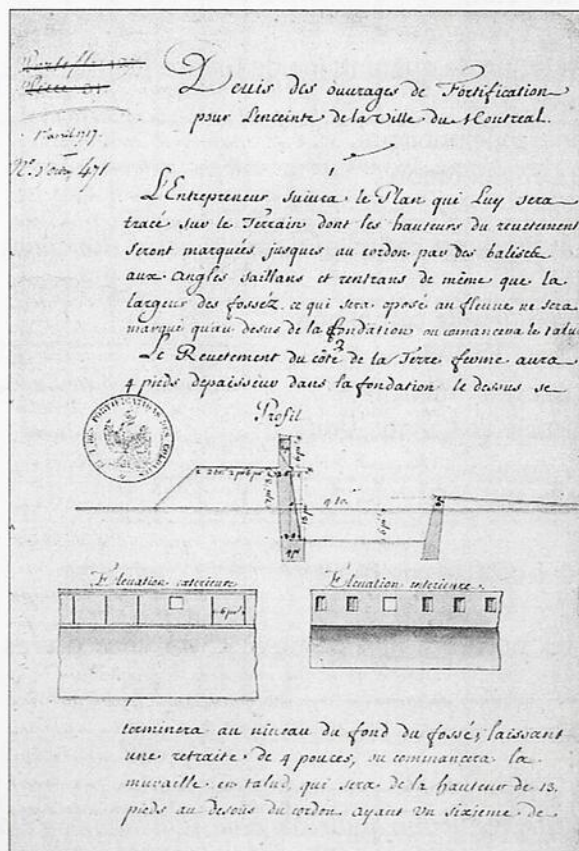 1er avril 1717
No. d'ordre 471
Deuis des ouvrages de Fortification
pour L'enceinte de la Ville du Montreal.
1
L'Entrepreneur suivra le Plan qui Luy sera
tracé sur le Terrain dont les hauteurs du revetement
seront marquées jusques au cordon par des balises
aux angles saillans et rentrans de même que la
largeur des fosséz, ce qui sera oposé au fleuve ne sera
marqué qu'au desus de la fondation ou comancera le talud
2
Le Revetement du côté de la Terre ferme aura
4 pieds depaisseur dans la fondation le dessus se
Profil
4 to
Elevation exterieure
Elevation interieure.
6 pi
terminera au niveau du fond du fossé, laissant
une retraite de 4 pouces, ou commancera la
muraille en talud, qui sera de la hauteur de 13
pieds au desous du cordon ayant un sixieme de